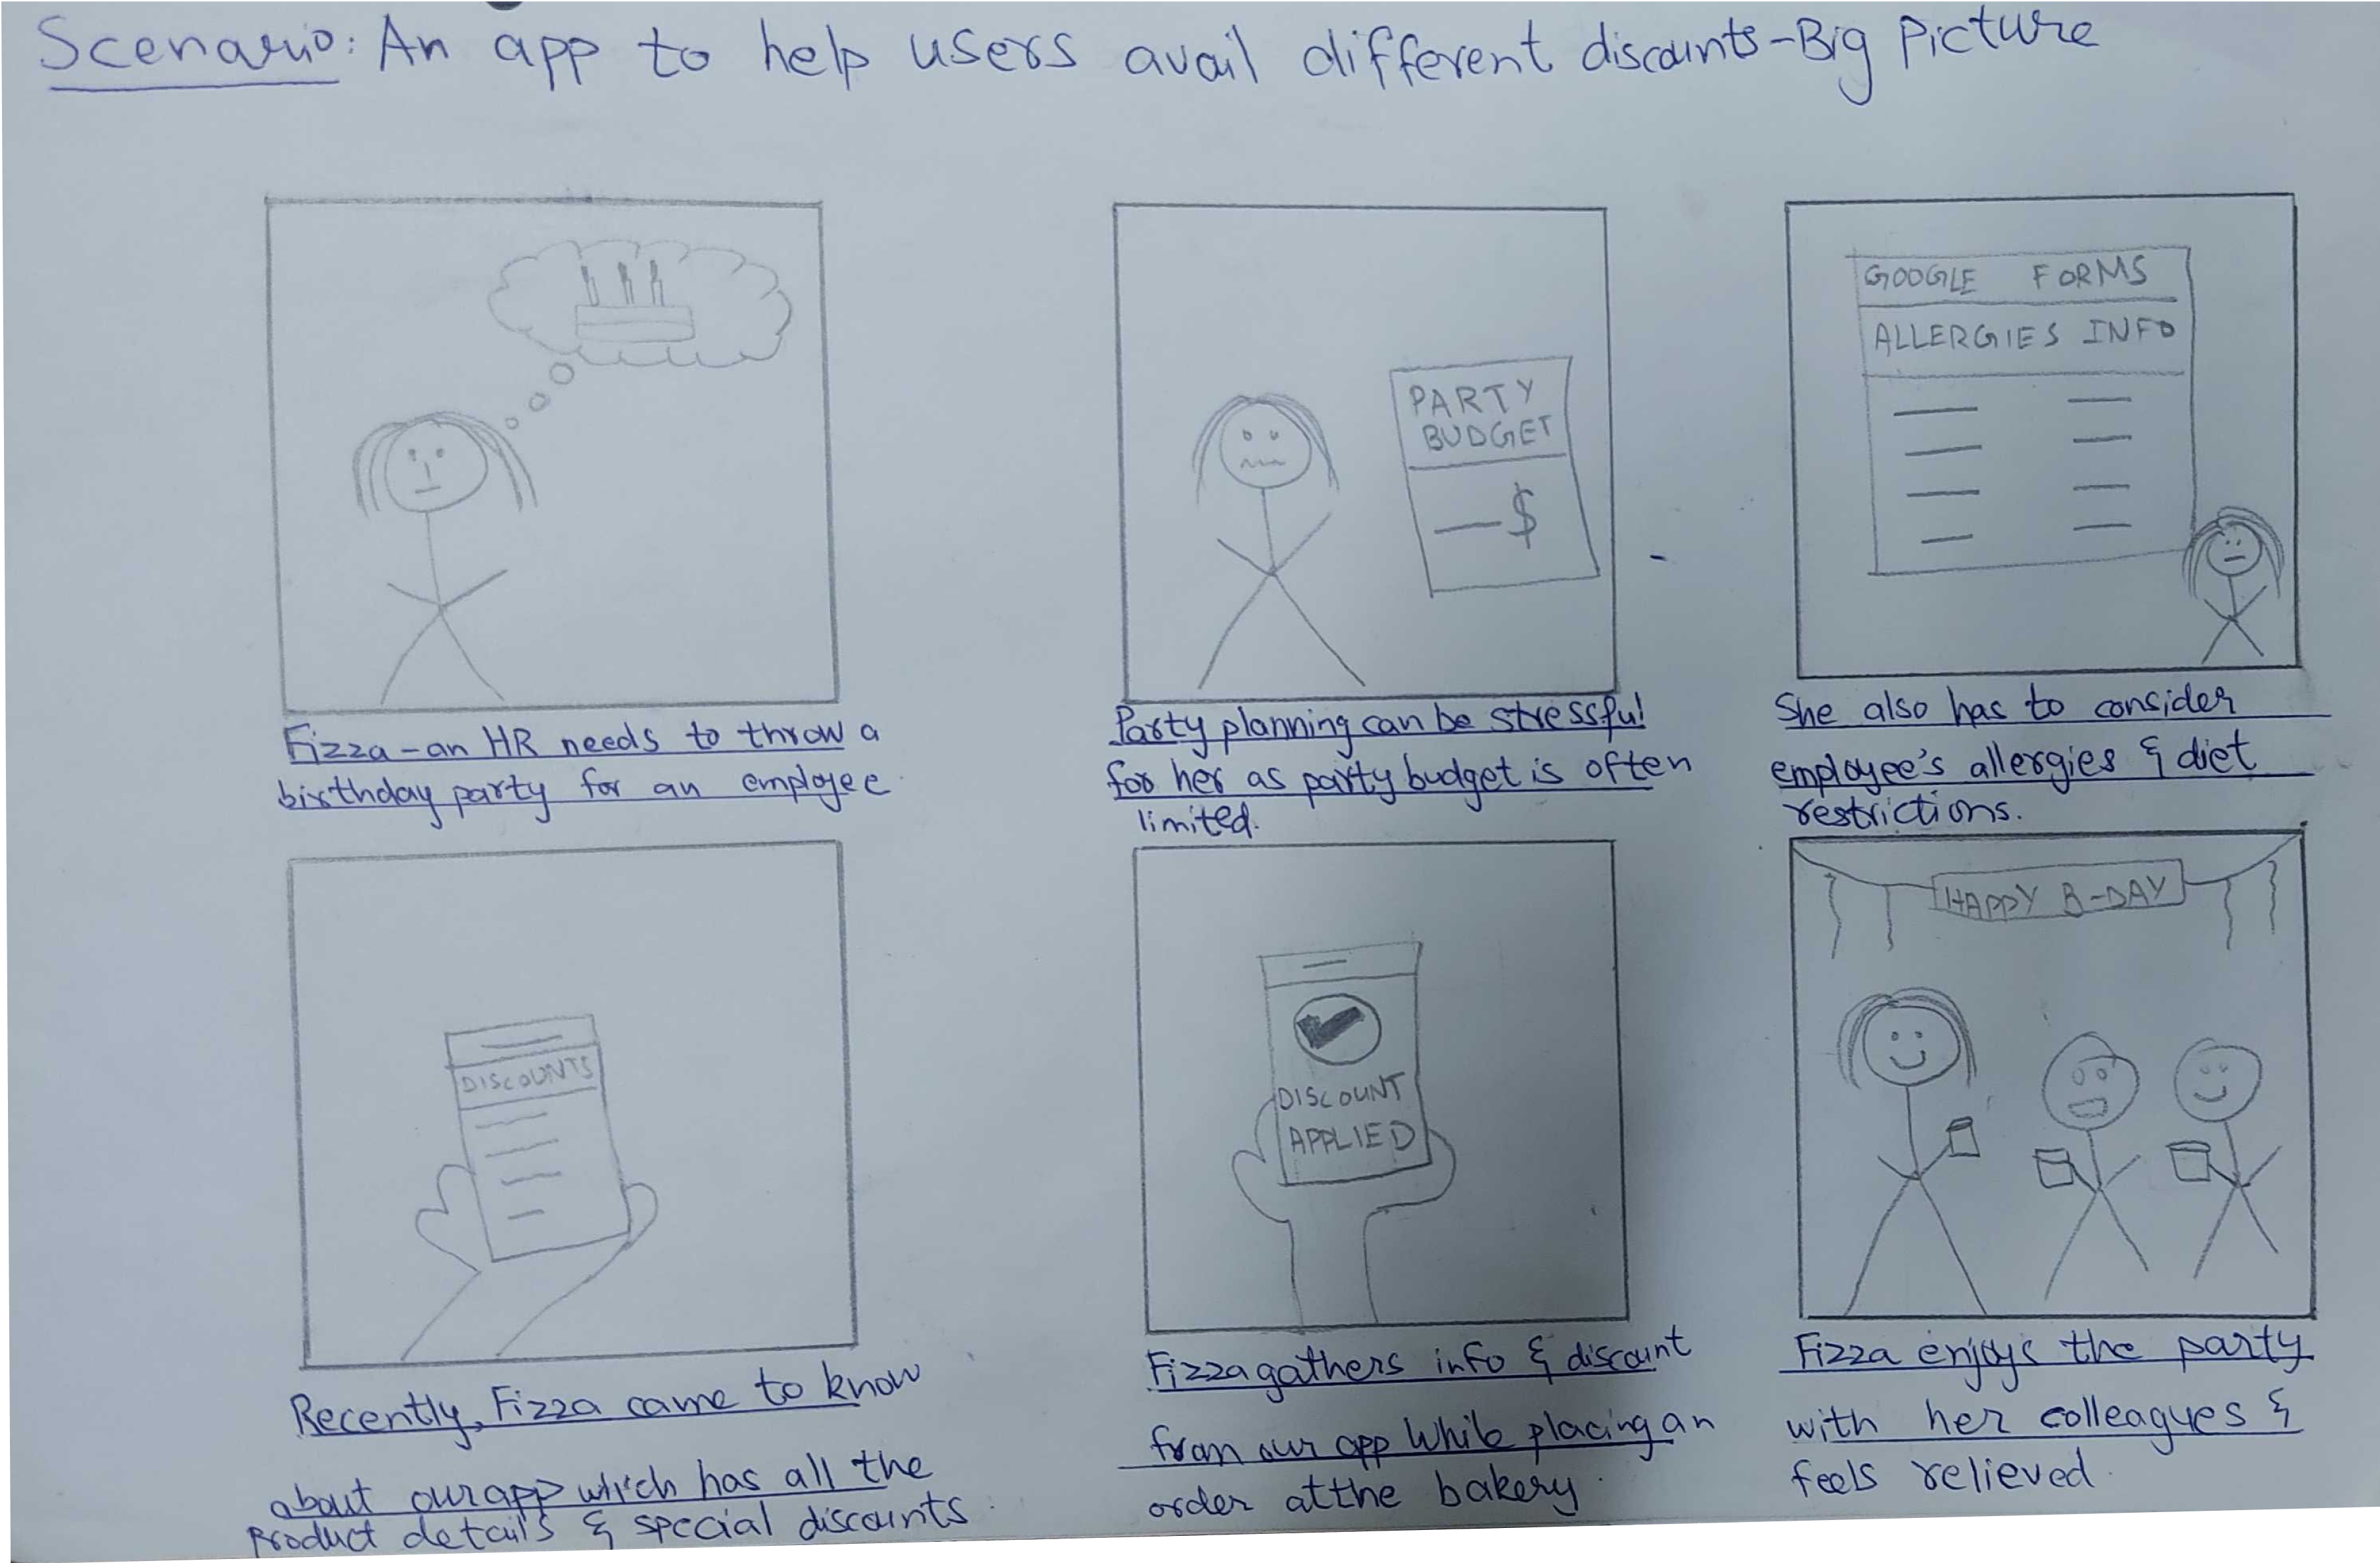 Scenario: An app to help users avail different discounts-Big Picture
GOOGLE FORMS
ALLERGIES INFO
PARTY
BUDGET
—$
Fizza-an HR needs to throw a
birthday party for an employee
Party planning can be stressful
for her as party budget is often
limited.
She also has to consider
employee's allergies & diet
restrictions.
DISCOUNTS
DISCOUNT
APPLIED
HAPPY B-DAY
Recently, Fizza came to know
about our app which has all the
product details & special discounts.
Fizza gathers info & discount
from our app while placing an
order at the bakery.
Fizza enjoys the party
with her colleagues &
feels relieved.